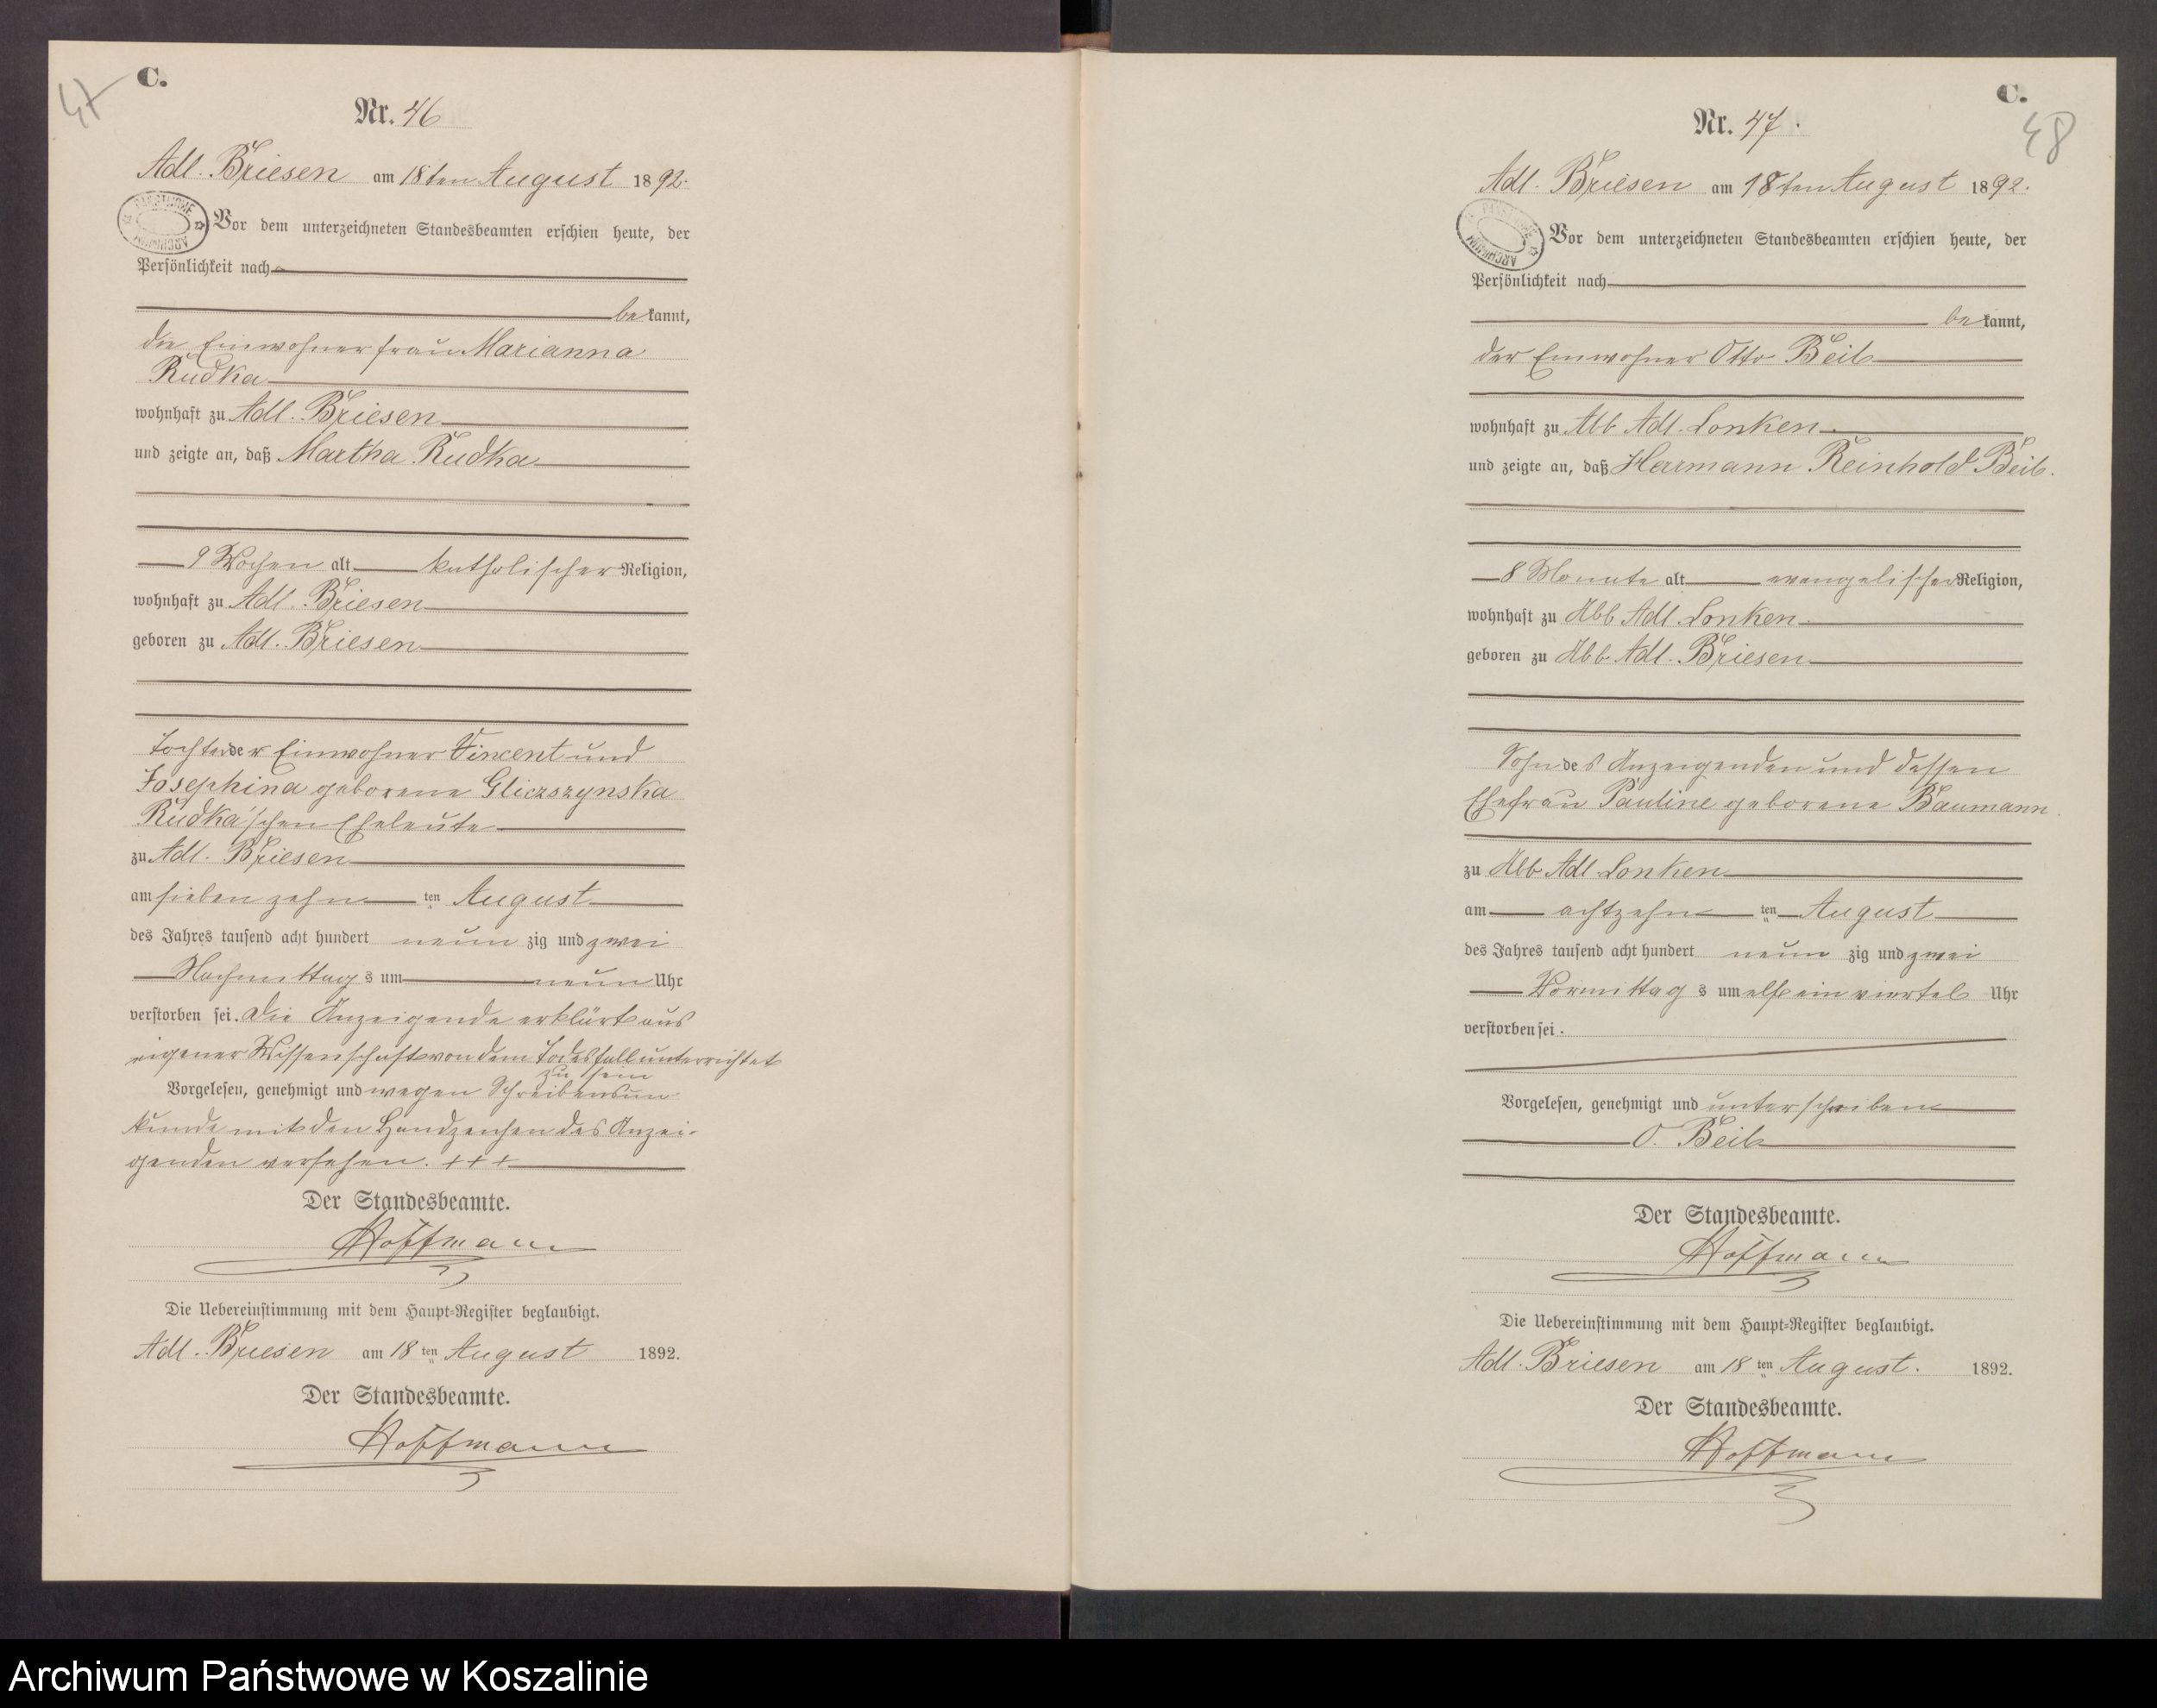 47
C.
Nr. 46
Adl. Briesen am 18ten August 1892.
Vor dem unterzeichneten Standesbeamten erschien heute, der
Persönlichkeit nach
bekannt,
die Einwohnerfrau Marianna
Rudka
wohnhaft zu Adl. Briesen
und zeigte an, daß Martha Rudka
9 Wochen alt katholischer Religion,
wohnhaft zu Adl. Briesen
geboren zu Adl. Briesen
Tochter der Einwohner Vincent und
Josephina geborene Gliczszynska
Rudka'schen Eheleute
zu Adl. Briesen
am siebenzehn ten August
des Jahres tausend acht hundert neun zig und zwei
Nachmittags um neun Uhr
verstorben sei. Die Anzeigende erklärt aus
eigener Wissenschaft von dem Todesfall unterrichtet
zu sein
Vorgelesen, genehmigt und wegen Schreibensun
kunde mit den Handzeichen des Anzei-
genden versehen. +++
Der Standesbeamte.
Hoffmann
Die Uebereinstimmung mit dem Haupt-Register beglaubigt.
Adl. Briesen am 18 ten August 1892.
Der Standesbeamte.
Hoffmann
C.
48
Nr. 47.
Adl. Briesen am 18ten August 1892.
Vor dem unterzeichneten Standesbeamten erschien heute, der
Persönlichkeit nach
bekannt,
der Einwohner Otto Beil
wohnhaft zu Abb Adl. Lonken
und zeigte an, daß Herrmann Reinhold Beil.
8 Monate alt evangelischer Religion,
wohnhaft zu Abb Adl. Lonken
geboren zu Abb Adl. Briesen
Sohn des Anzeigenden und dessen
Ehefrau Pauline geborene Baumann.
zu Abb Adl. Lonken
am achtzehn ten August
des Jahres tausend acht hundert neun zig und zwei
Vormittags um elf ein viertel Uhr
verstorben sei.
Vorgelesen, genehmigt und unterschrieben
O. Beil
Der Standesbeamte.
Hoffmann
Die Uebereinstimmung mit dem Haupt-Register beglaubigt.
Adl. Briesen am 18 ten August. 1892.
Der Standesbeamte.
Hoffmann
Archiwum Państwowe w Koszalinie